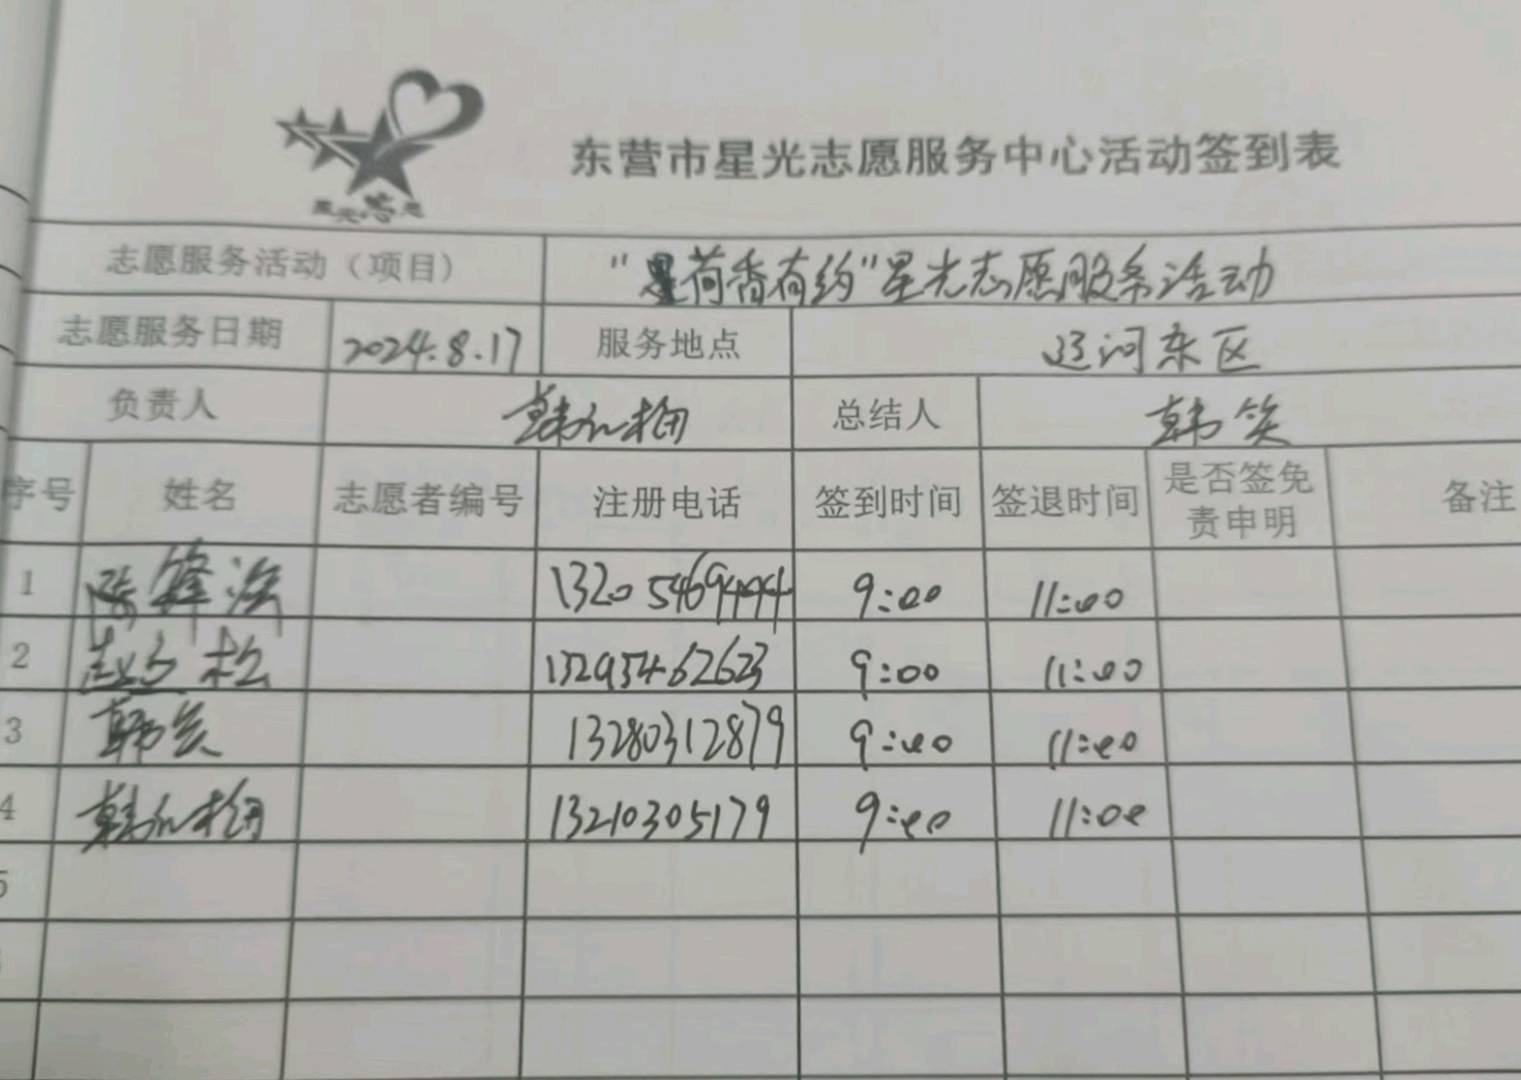 东营市星光志愿服务中心活动签到表
志愿服务活动（项目） "荷香有约"星光志愿服务活动
志愿服务日期 2024.8.17 服务地点 辽河东区
负责人 韩 梅 总结人 韩笑
序号 姓名 志愿者编号 注册电话 签到时间 签退时间 是否签免责申明 备注
1 13205469494 9:00 11:00
2 赵 松 13295462623 9:00 11:00
3 韩笑 13280312879 9:00 11:00
4 韩 梅 13210305179 9:00 11:00
5